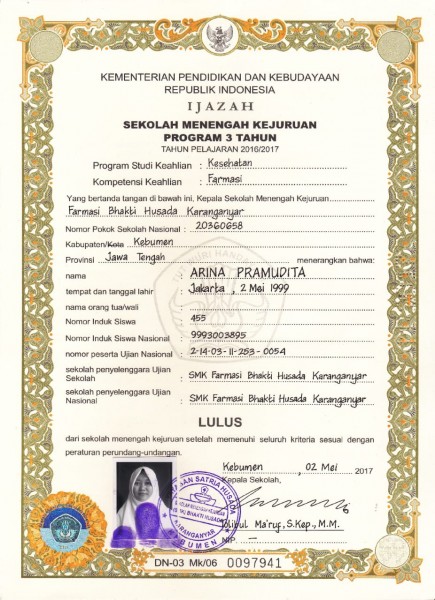 KEMENTERIAN PENDIDIKAN DAN KEBUDAYAAN
REPUBLIK INDONESIA
IJAZAH
SEKOLAH MENENGAH KEJURUAN
PROGRAM 3 TAHUN
TAHUN PELAJARAN 2016/2017
Program Studi Keahlian : Kesehatan
Kompetensi Keahlian : Farmasi
Yang bertanda tangan di bawah ini, Kepala Sekolah Menengah Kejuruan
Farmasi Bhakti Husada Karanganyar
Nomor Pokok Sekolah Nasional : 20360658
Kabupaten/Kota Kebumen
Provinsi Jawa Tengah menerangkan bahwa:
nama : ARINA PRAMUDITA
tempat dan tanggal lahir : Jakarta, 2 Mei 1999
nama orang tua/wali :
Nomor Induk Siswa : 455
Nomor Induk Siswa Nasional : 9993003895
nomor peserta Ujian Nasional : 2-14-03-11-253-0054
sekolah penyelenggara Ujian Sekolah : SMK Farmasi Bhakti Husada Karanganyar
sekolah penyelenggara Ujian Nasional : SMK Farmasi Bhakti Husada Karanganyar
LULUS
dari sekolah menengah kejuruan setelah memenuhi seluruh kriteria sesuai dengan
peraturan perundang-undangan.
Kebumen, 02 Mei 2017
Kepala Sekolah,
Ma'ruf, S.Kep., M.M.
NIP —
BHAKTI HUSADA
KARANGANYAR
KEBUMEN
DN-03 Mk/06 0097941